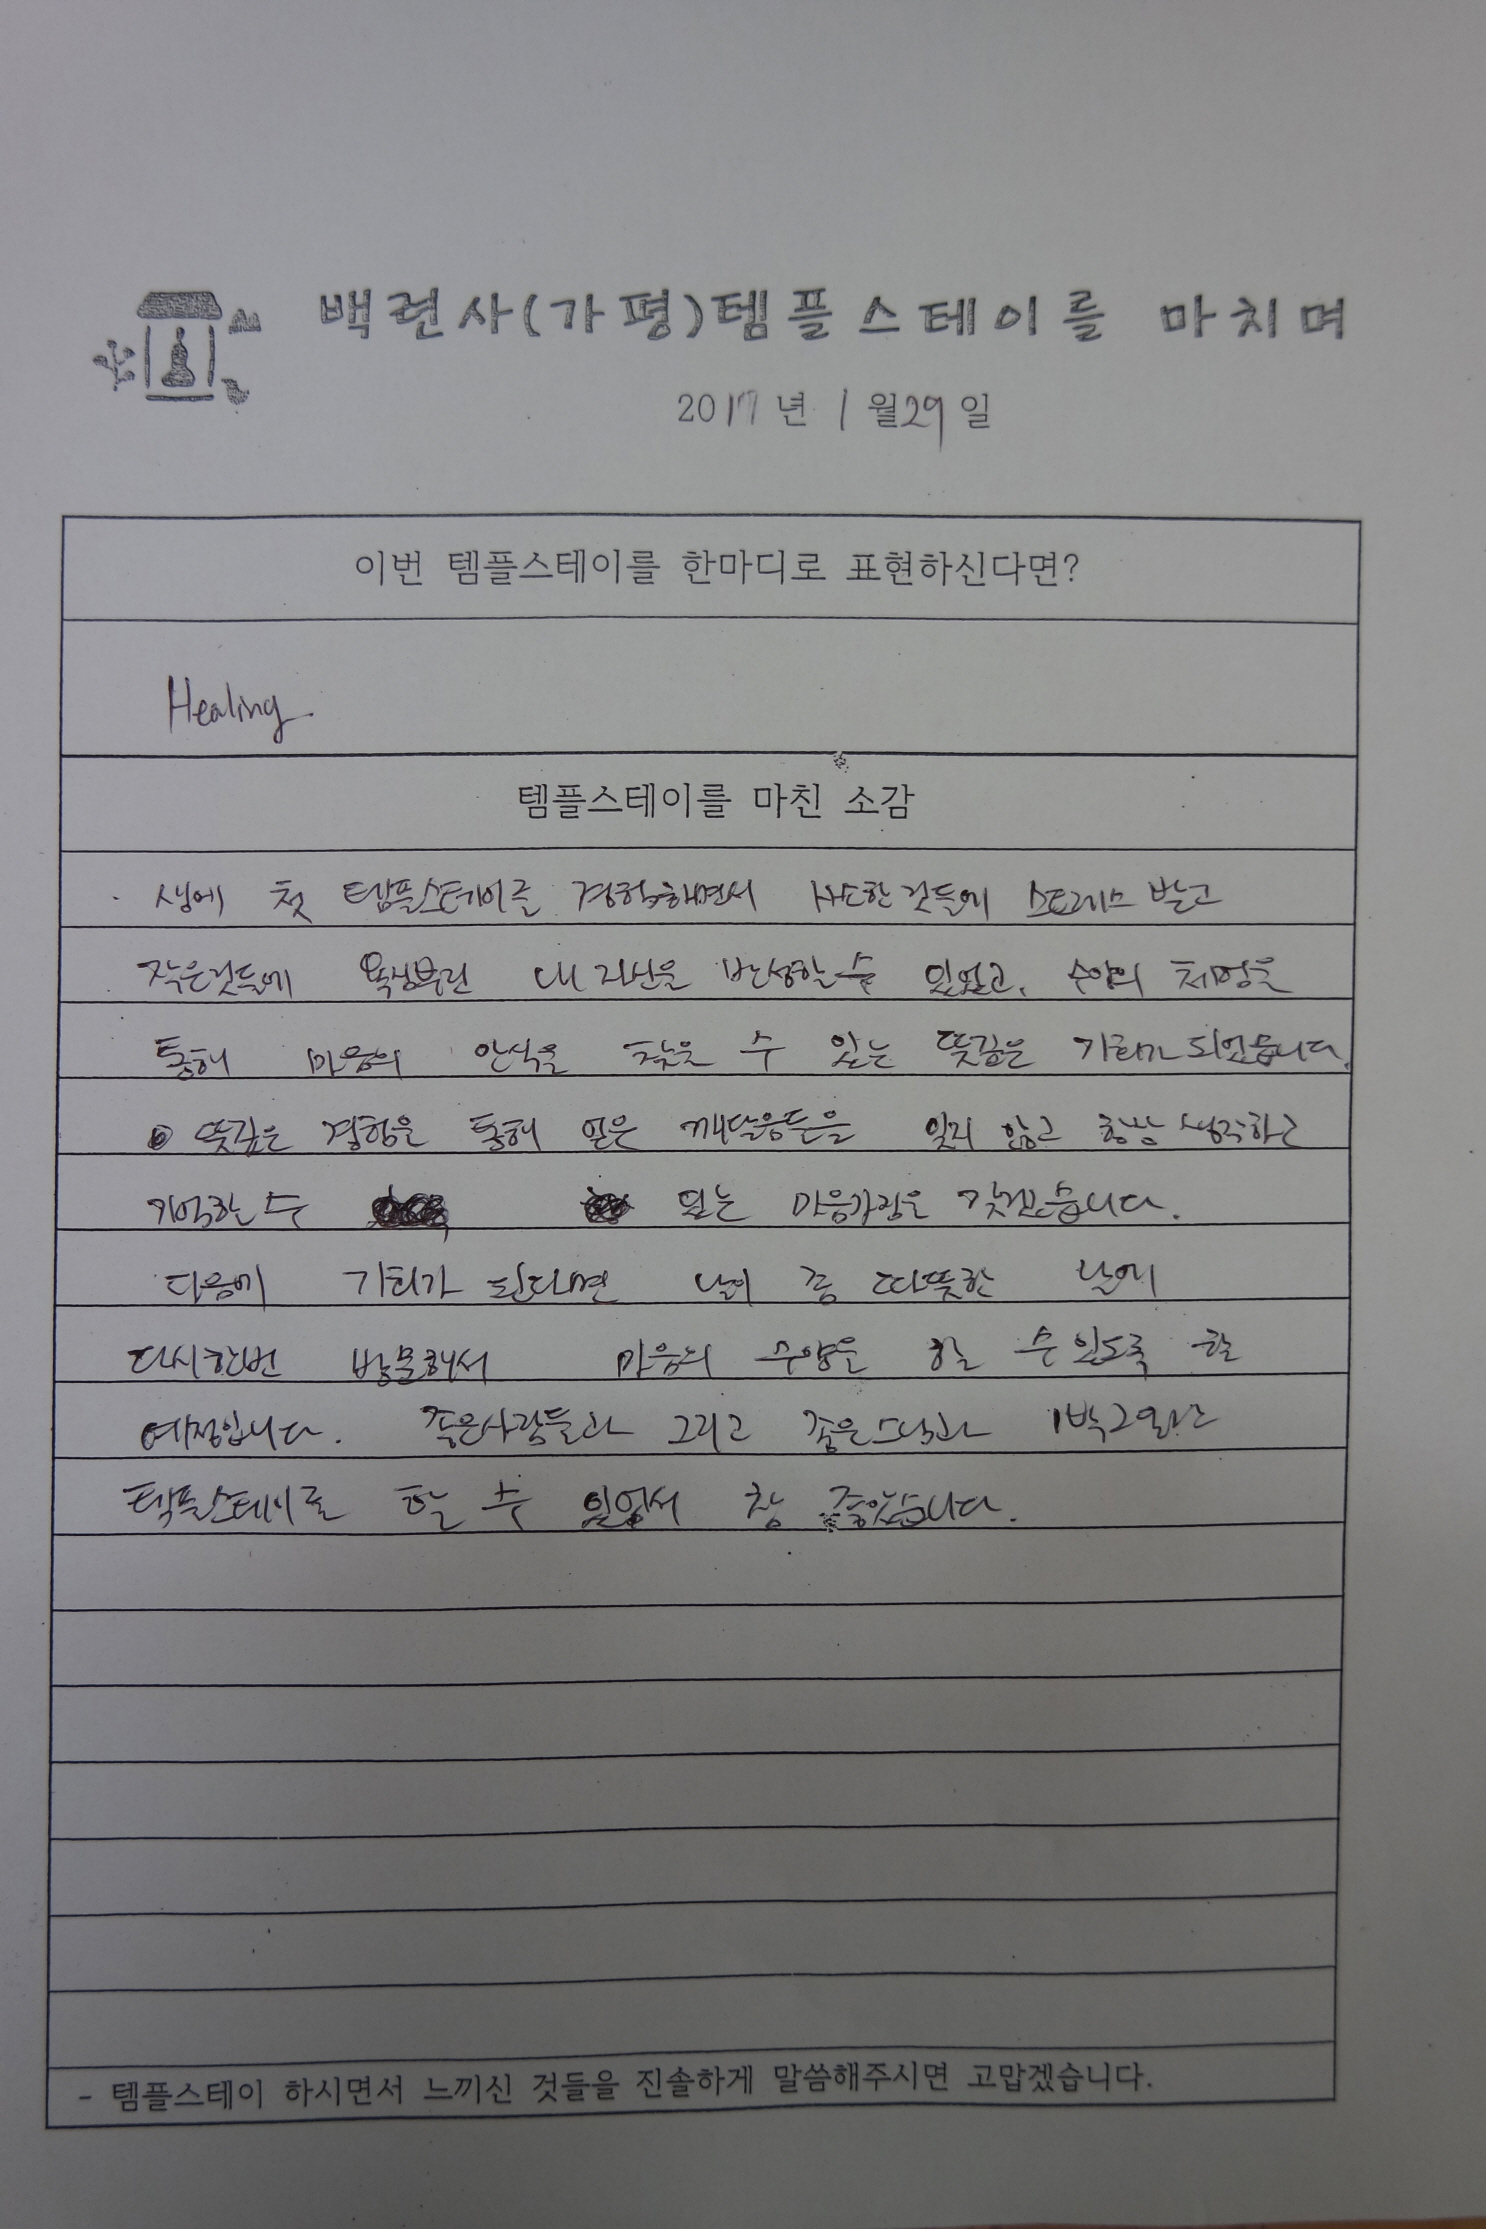 백련사(가평)템플스테이를 마치며
2017년 1월29일
이번 템플스테이를 한마디로 표현하신다면?
Healing
템플스테이를 마친 소감
생에 첫 템플스테이를 경험해면서 사소한것들에 스트레스 받고
작은것들에 욕심부린 내 자신을 반성할수 있었고, 수양의 체험을
통해 마음의 안식을 찾을 수 있는 뜻깊은 기회가 되었습니다.
뜻깊은 경험을 통해 얻은 깨달음들을 잊지 않고 항상 생각하고
기억할 수 있는 마음가짐을 갖겠습니다.
다음에 기회가 된다면 날이 좀 따뜻한 날에
다시한번 방문해서 마음의 수양을 할 수 있도록 할
예정입니다. 좋은사람들과 그리고 좋은스님과 1박2일간
템플스테이를 할 수 있어서 참 좋았습니다.
- 템플스테이 하시면서 느끼신 것들을 진솔하게 말씀해주시면 고맙겠습니다.